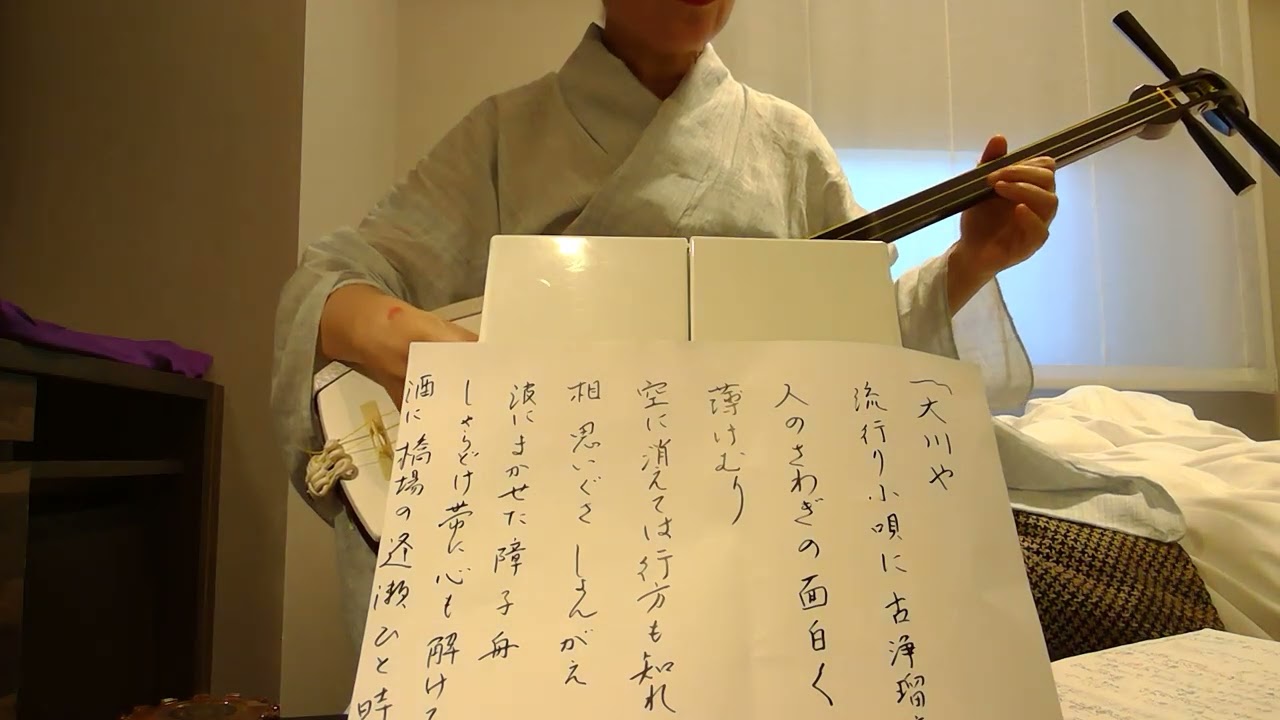 〽大川や
流行り小唄に古浄瑠
人のさわぎの面白く
薄けむり
空に消えては行方も知れ
相思いぐさ しょんがえ
波にまかせた障子舟
しゃらどけ帯に心も解け
酒に橋場の逢瀬ひと時